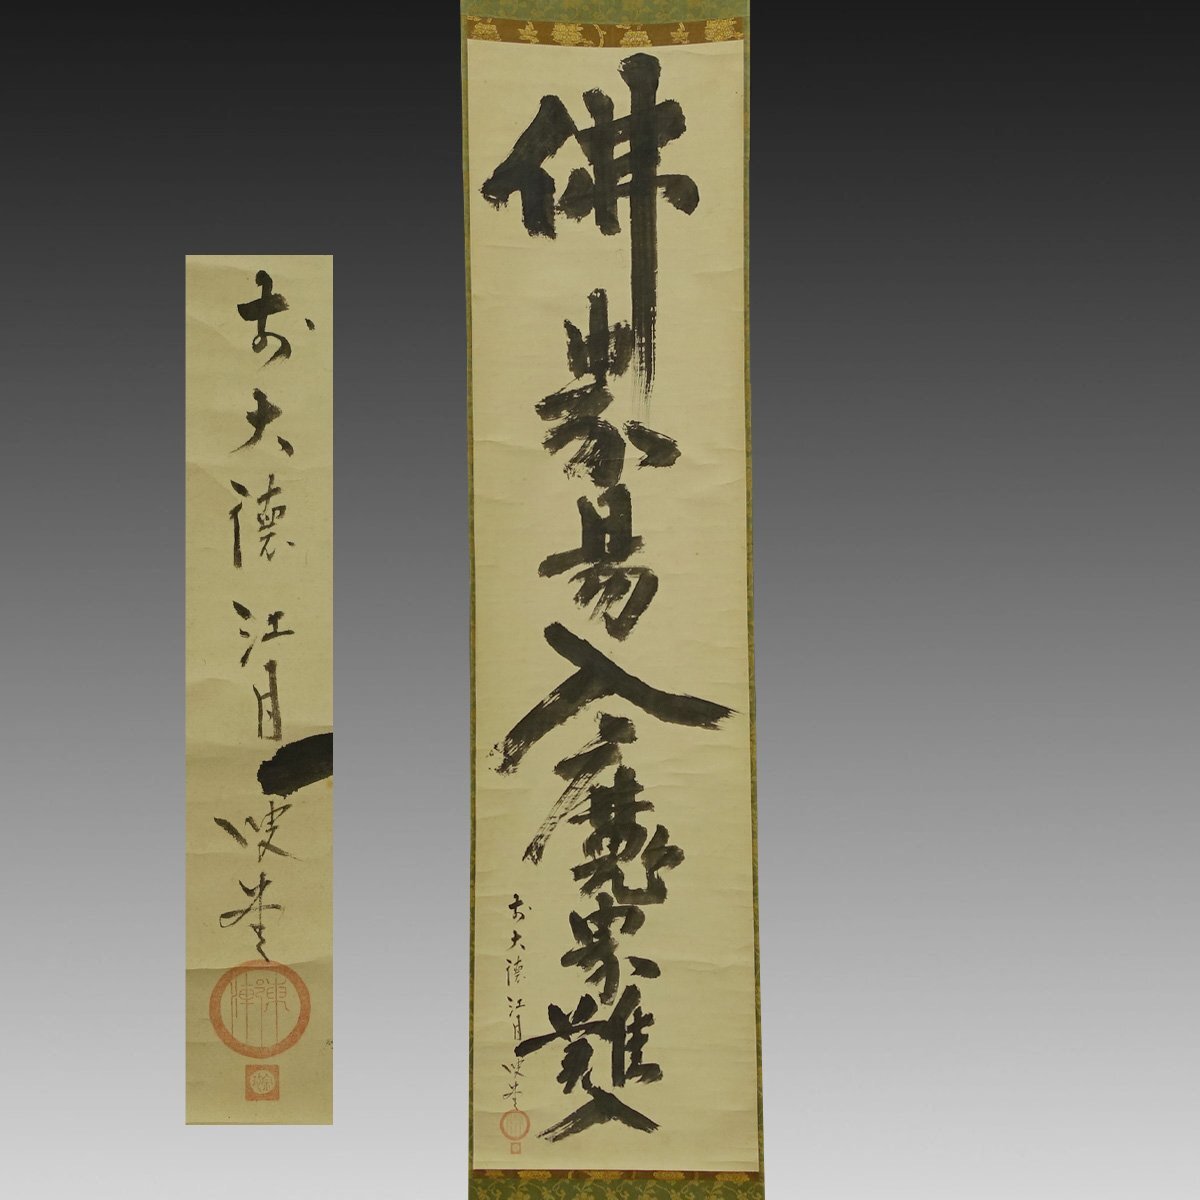 佛界易入魔界難入
前大德江月叟書
前大德江月叟書